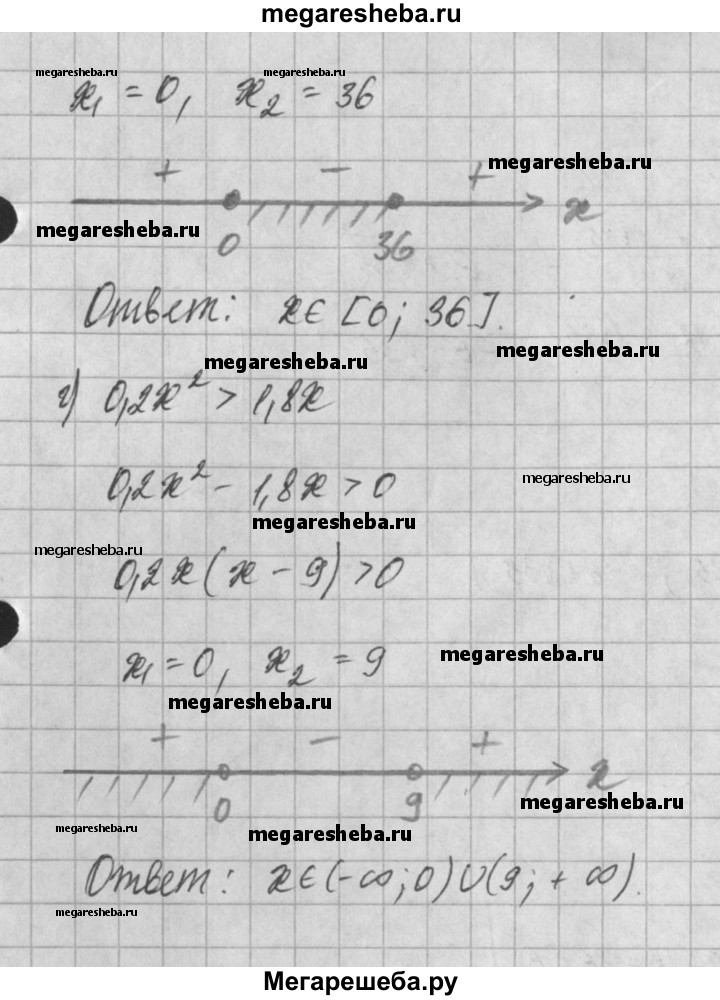 megaresheba.ru
megaresheba.ru megaresheba.ru
x₁ = 0, x₂ = 36
megaresheba.ru
+ − +
x
megaresheba.ru
0 36
Ответ: x∈[0; 36].
megaresheba.ru
megaresheba.ru
г) 0,2x² > 1,8x
0,2x² − 1,8x > 0
megaresheba.ru
megaresheba.ru
megaresheba.ru
0,2x(x − 9) > 0
x₁ = 0, x₂ = 9
megaresheba.ru
megaresheba.ru
+ − +
x
0 9
megaresheba.ru
megaresheba.ru
megaresheba.ru
Ответ: x∈(−∞; 0)∪(9; +∞).
megaresheba.ru
megaresheba.ru
Мегарешеба.ру